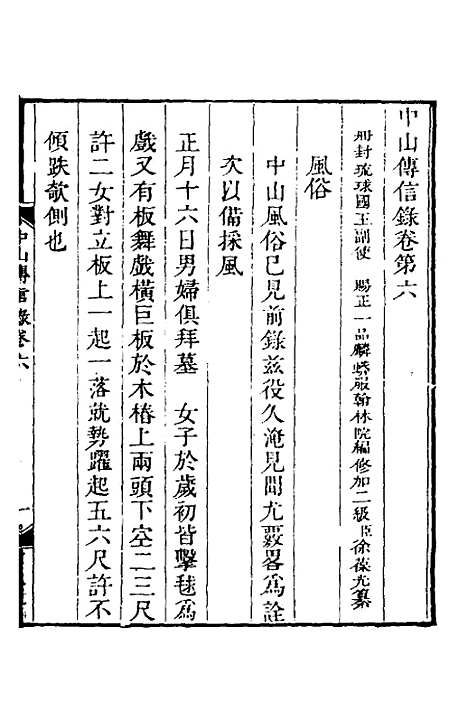 中山傳信錄卷第六
冊封琉球國王副使　賜正一品麟蟒服翰林院編修加二級臣徐葆光纂
風俗
中山風俗已見前錄茲役久淹見聞尤覈畧爲詮
次以備採風
正月十六日男婦俱拜墓　女子於歲初皆擊毬爲
戲又有板舞戲橫巨板於木樁上兩頭下空二三尺
許二女對立板上一起一落就勢躍起五六尺許不
傾跌欹側也
中山傳信錄卷六
一